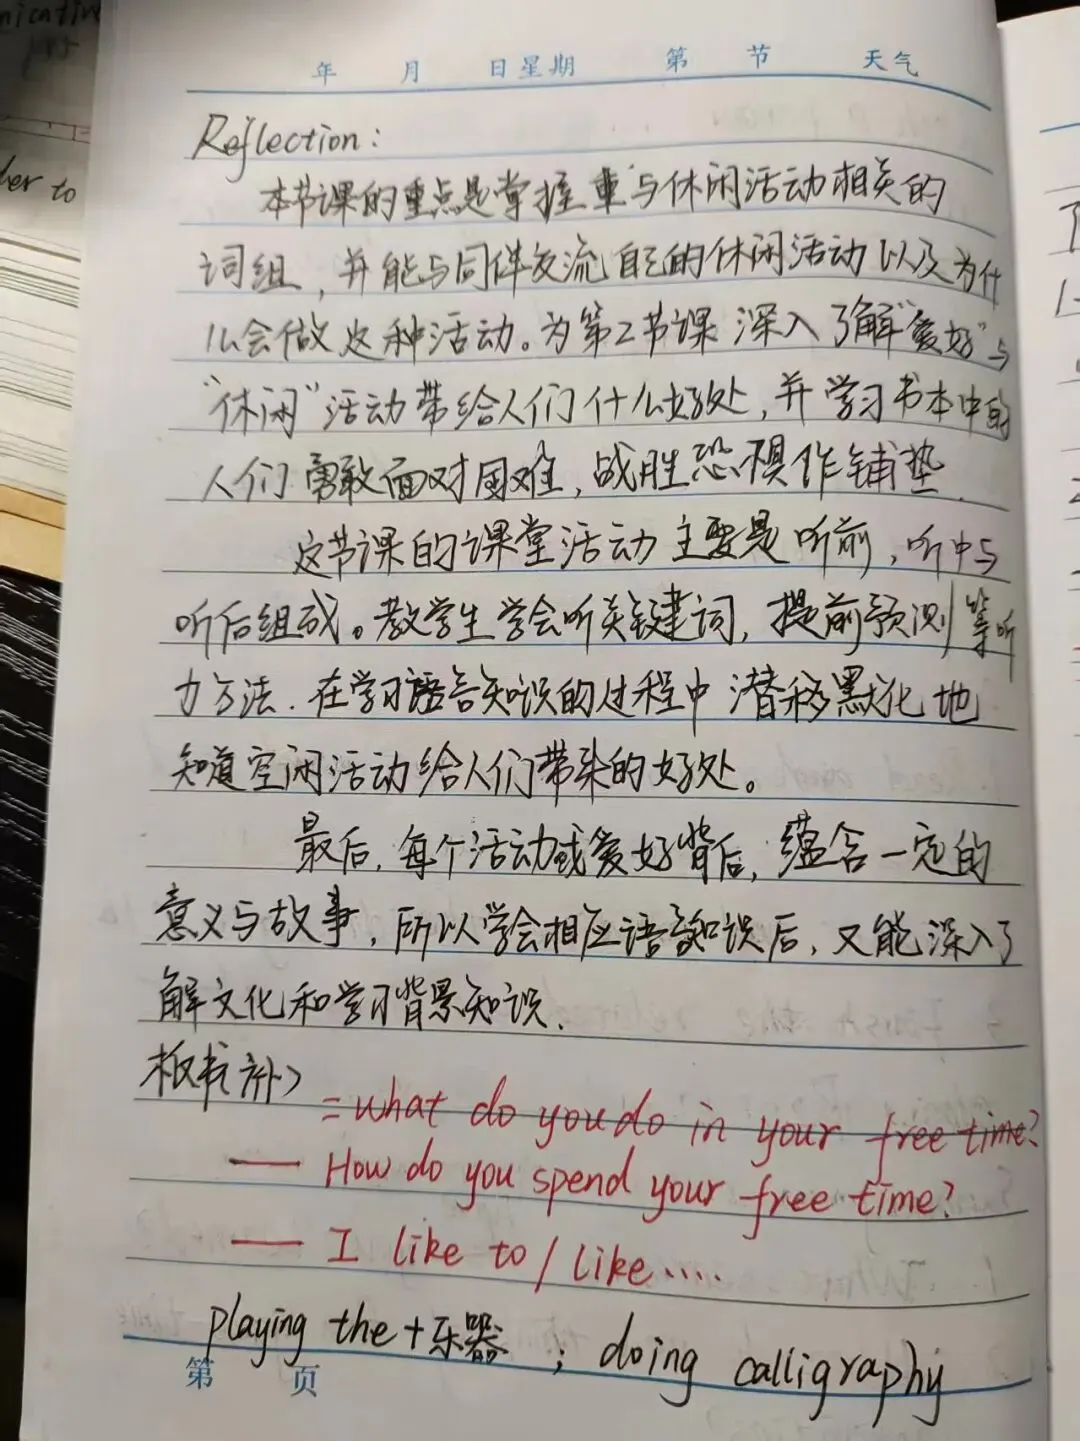 年 月 日星期 第 节 天气
Reflection:
本节课的重点是掌握重与休闲活动相关的
词组，并能与同伴交流自己的休闲活动以及为什
么会做这种活动。为第2节课深入了解"爱好"与
"休闲"活动带给人们什么好处，并学习书本中的
人们勇敢面对困难，战胜恐惧作铺垫.
这节课的课堂活动主要是听前，听中与
听后组成。教学生学会听关键词，提前预测等听
力方法.在学习语言知识的过程中潜移默化地
知道空闲活动给人们带来的好处。
最后，每个活动或爱好背后，蕴含一定的
意义与故事，所以学会相应语言知识后，又能深入了
解文化和学习背景知识.
板书补>
=what do you do in your free time?
— How do you spend your free time?
— I like to / like.....
playing the + 乐器 ; doing calligraphy
第 页